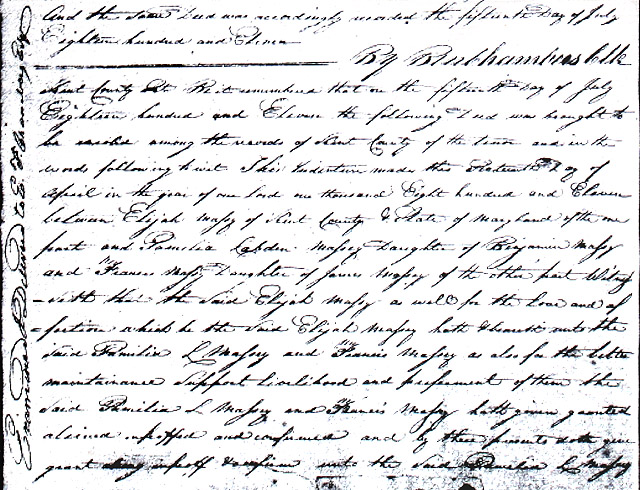 And the same Deed was accordingly recorded the fifteenth Day of July
Eighteen hundred and Eleven
By Clk
Kent County Sct Be it remembered that on the fifteenth Day of July
Eighteen hundred and Eleven the following Deed was brought to
be among the records of Kent County of the tenor and in the
words following to wit This Indenture made this Day of
April in the year of our lord one thousand Eight hundred and Eleven
between Elijah Massy of Kent County & State of Maryland of the one
part and Pamilia Massey Daughter of Benjamin Massy
and Francis Massy Daughter of James Massey of the other part Witness
-seth that the said Elijah Massy as well for the Love and af
-fection which he the said Elijah Massey hath & beareth unto the
said Pamilia L Massey and Francis Massey as also for the better
maintainance Support livelihood and preferment of them the
said Pamilia L Massey and Francis Massy hath given granted
aliened infeoffed and confirmed and by these presents doth give
grant infeoff & confirm unto the said Pamilia L Massey
Examined & Delivered to